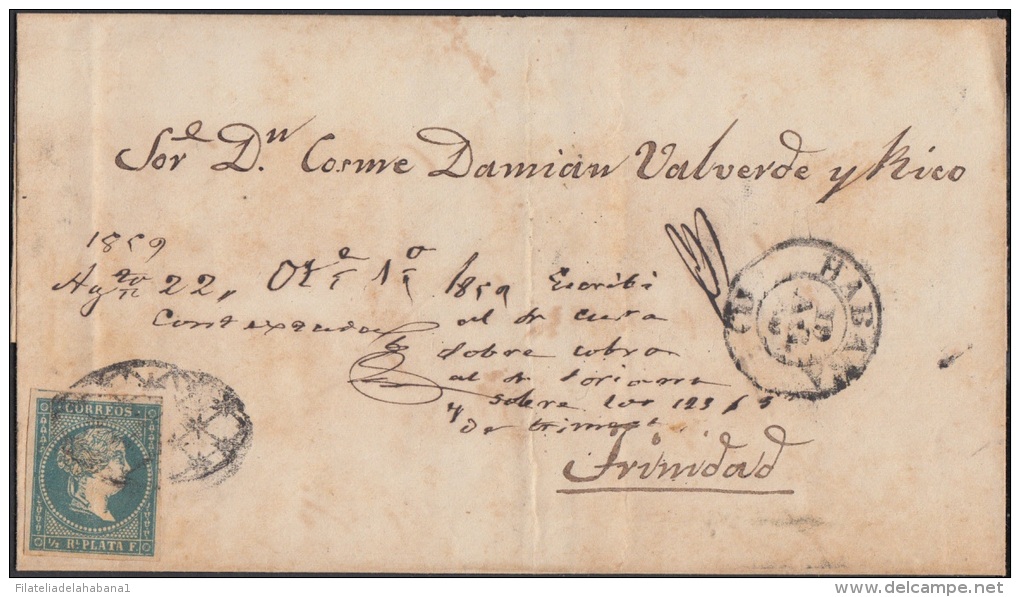 Sor. Dn. Cosme Damian Valverde y Rico
1859
Agto 22,,
1859 Escribi
Contextada al dr cura
sobre cobro
al dr Soriano
sobre los 123 p
Trinidad
HABANA
CORREOS
½ Rl. PLATA F.
Filateliadelahabana1
www.delcampe.net